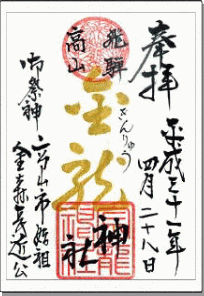 奉拝
平成三十一年
四月二十八日
飛騨
高山
金龍
きんりゅう
神社
御祭神 高山市始祖
金森長近公